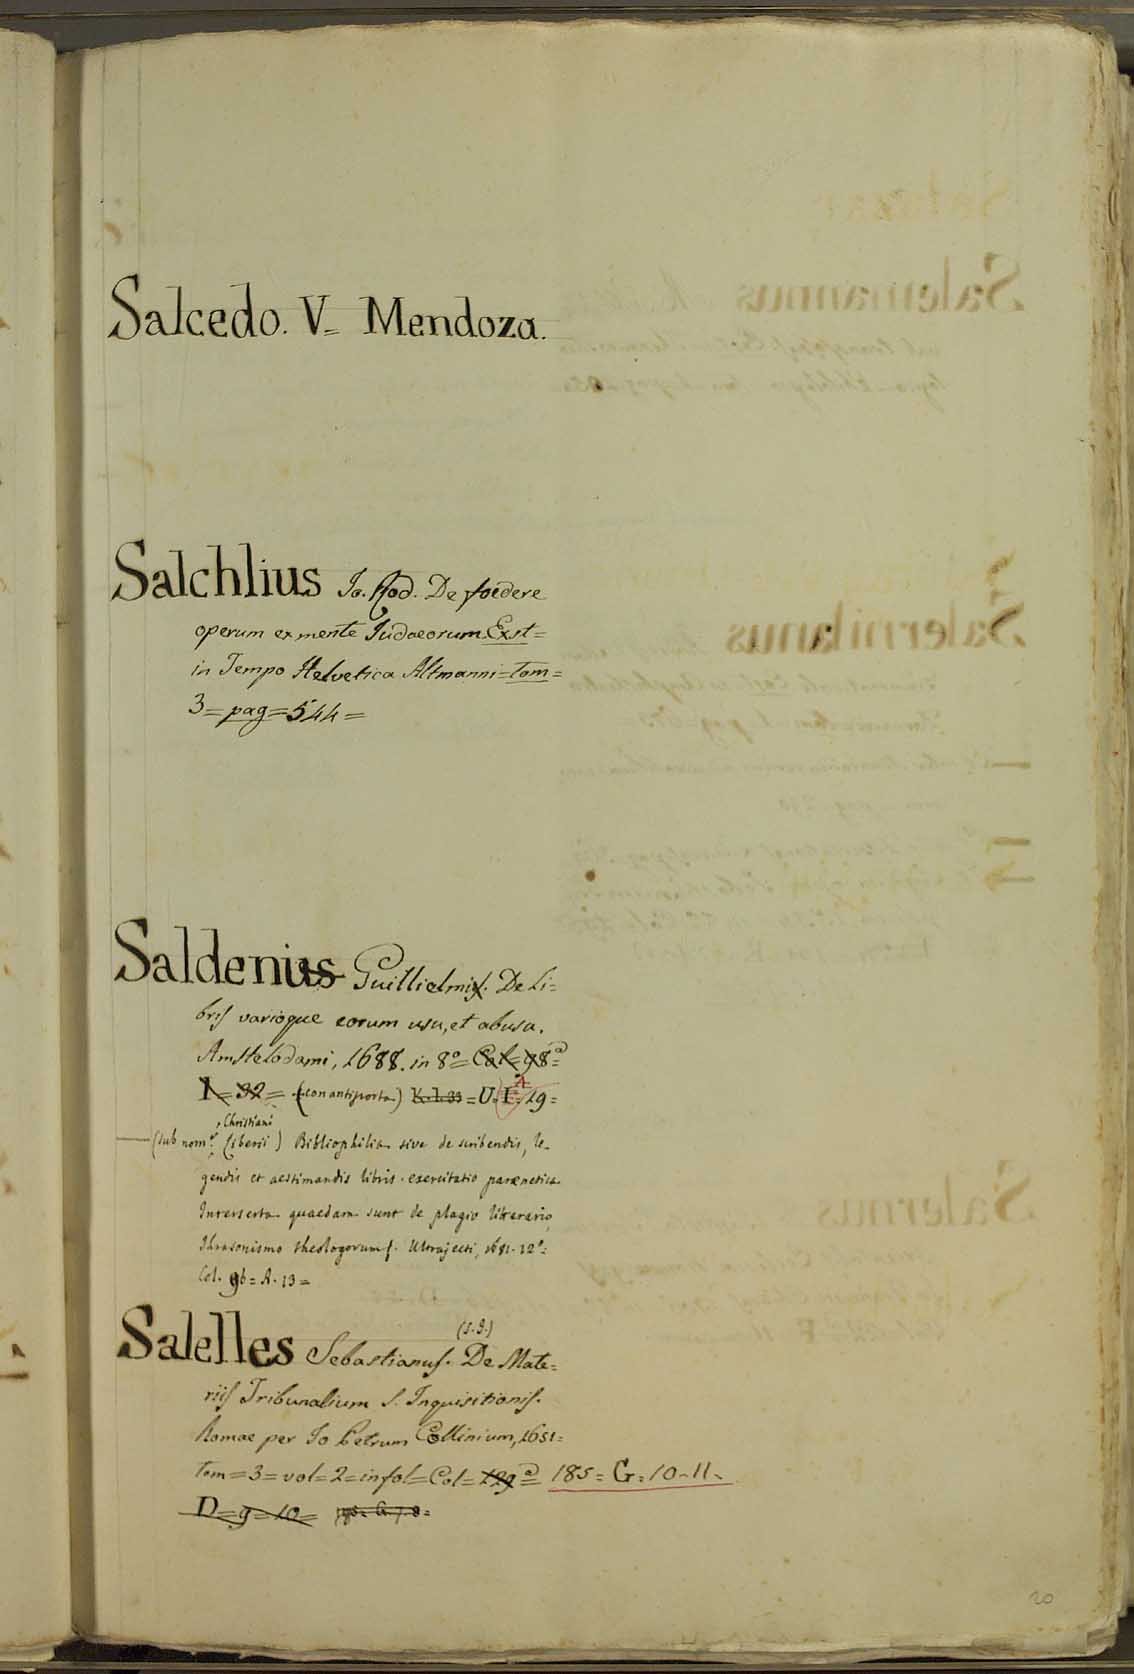 Salcedo. V= Mendoza.
Salchlius Jo. Rod. De foedere
operum ex mente Judaeorum. Exst=
in Tempo Helvetica Altmanni=tom=
3=pag=544=
Saldenius Guillielmi. De Li=
bris varioque eorum usu, et abusu.
Amstelodami, 1688. in 8º= Col=98=
I=32= (con antiporta) K.I.33=U.I.A.19=
Christiani
(sub nom.e Liberii) Bibliophilia sive de scribendis, le-
gendis et aestimandis libris. exercitatio paraenetica
Interserta quaedam sunt de plagio literario,
thrasonismo theologorum f. Ultrajecti, 1681. 12º=
Col. 96=A.13=
(S.J.)
Salelles Sebastianus. De Mate=
riis Tribunalium S. Inquisitionis.
Romae per Jo Petrum Collinium, 1651=
tom=3=vol=2=in fol=Col=129= 185=G=10-11.
D=9=10=
20